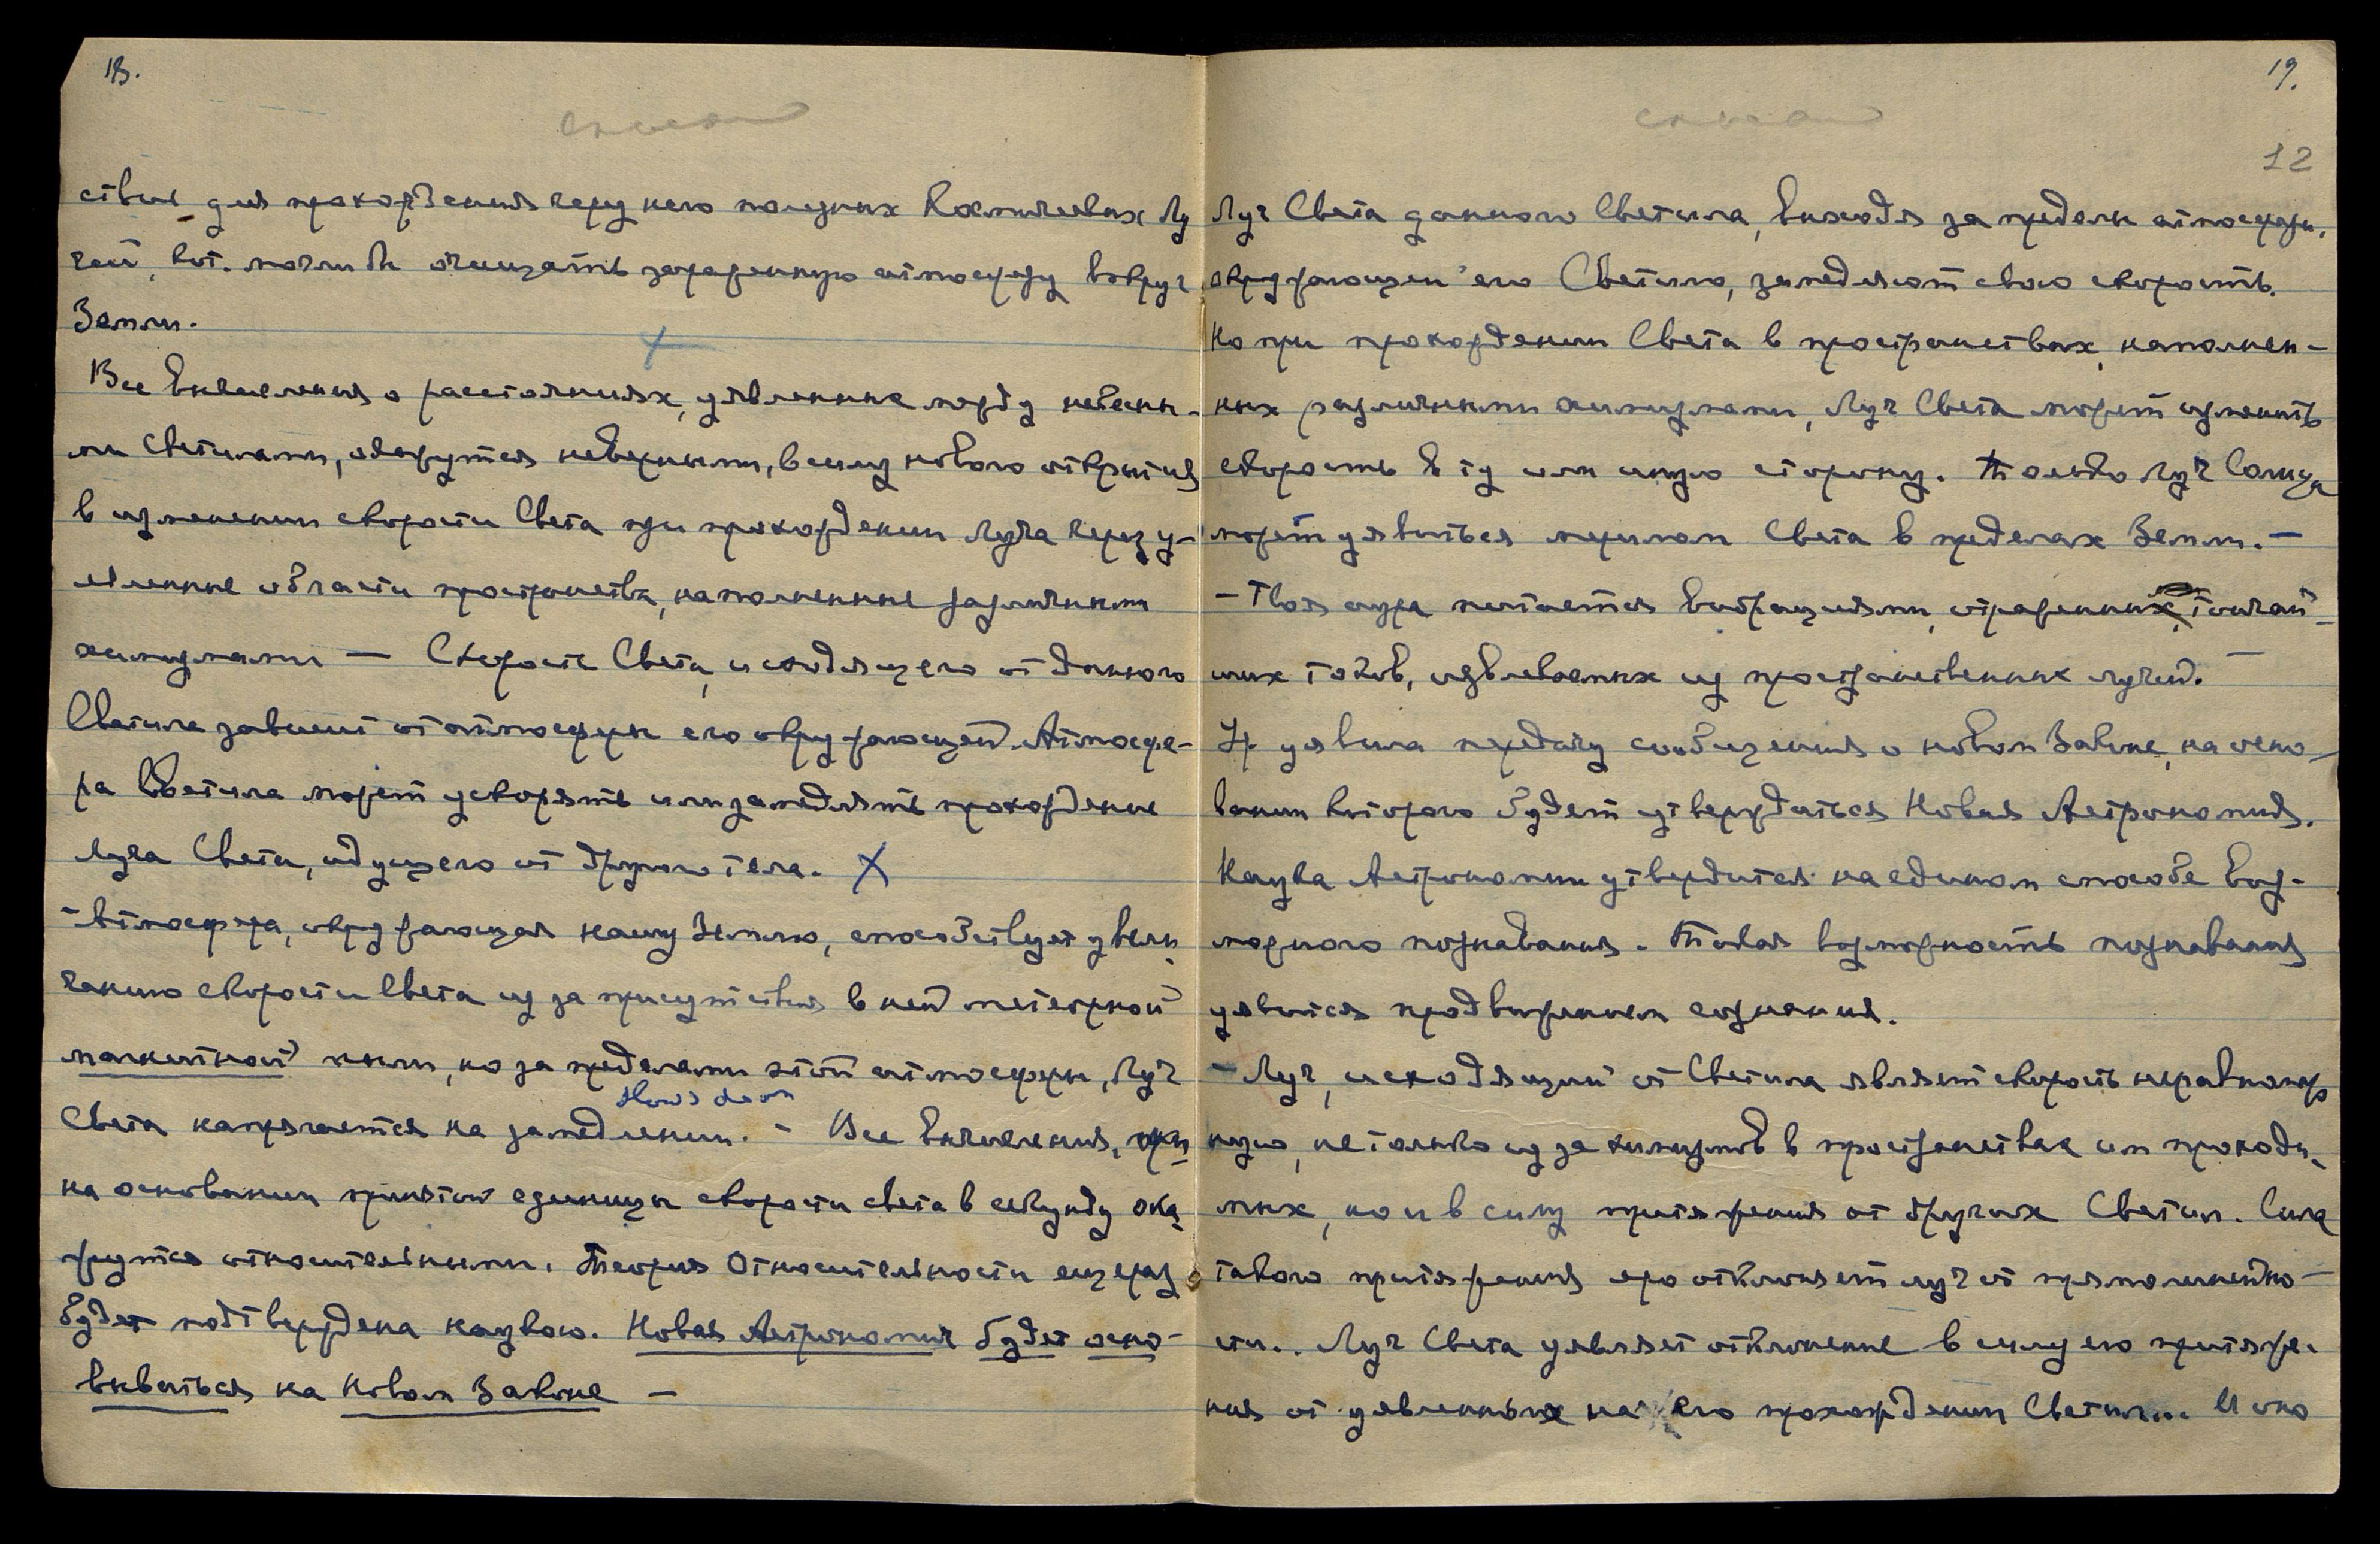 18.
ствие для прохождения через него полезных Космических Лу
чей, кот. могли бы очищать зараженную атмосферу вокруг
Земли.
Все вычисления о расстояниях, уявленные между небесны-
ми Светилами, окажутся неверными, в силу нового открытия
в изменении скорости Света при прохождении Луча через у-
явленные области пространства, наполненные различными
химизмами — Скорость Света, исходящего от данного
Светила зависит от атмосферы его окружающей. Атмосфе-
ра Светила может ускорять или замедлять прохождение
Луча Света, идущего от другого тела. X
- Атмосфера, окружающая нашу Землю, способствует увели
чению скорости Света из за присутствия в ней метеорной
магнитной пыли, но за пределами этой атмосферы, Луч
slows down
Света напрягается на замедлении. - Все вычисления,
на основании принятой единицы скорости света в секунду ока
жутся относительными. Теория Относительности еще раз
будет подтверждена наукою. Новая Астрономия будет осно-
вываться на Новом Законе —
19.
12
Луч Света данного Светила, выходя за пределы атмосферы,
окружающей его Светило, замедляют свою скорость.
Но при прохождении Света в пространствах, наполнен-
ных различными химизмами, Луч Света может изменить
скорость в ту или иную сторону. Только Луч Солнца
может уявиться мерилом Света в пределах Земли. —
- Твоя аура питается вибрациями, отраженных тончай-
ших токов, извлекаемых из пространственных лучей. —
Ур. уявила передачу сообщения о новом Законе, на осно-
вании которого будет утверждаться Новая Астрономия.
Наука Астрономии утвердится на едином способе воз-
можного познавания. Такая возможность познавания
уявится продвижением сознания.
- Луч, исходящий от Светила являет скорость неравномер
ную, не только из за химизмов в пространствах им проходи
мых, но и в силу притяжения от других Светил. Сила
такого притяжения яро отклоняет луч от прямолинейно-
сти.. Луч Света уявляет отклонение в силу его притяже-
ния от уявленных на его прохождении Светил... И оно